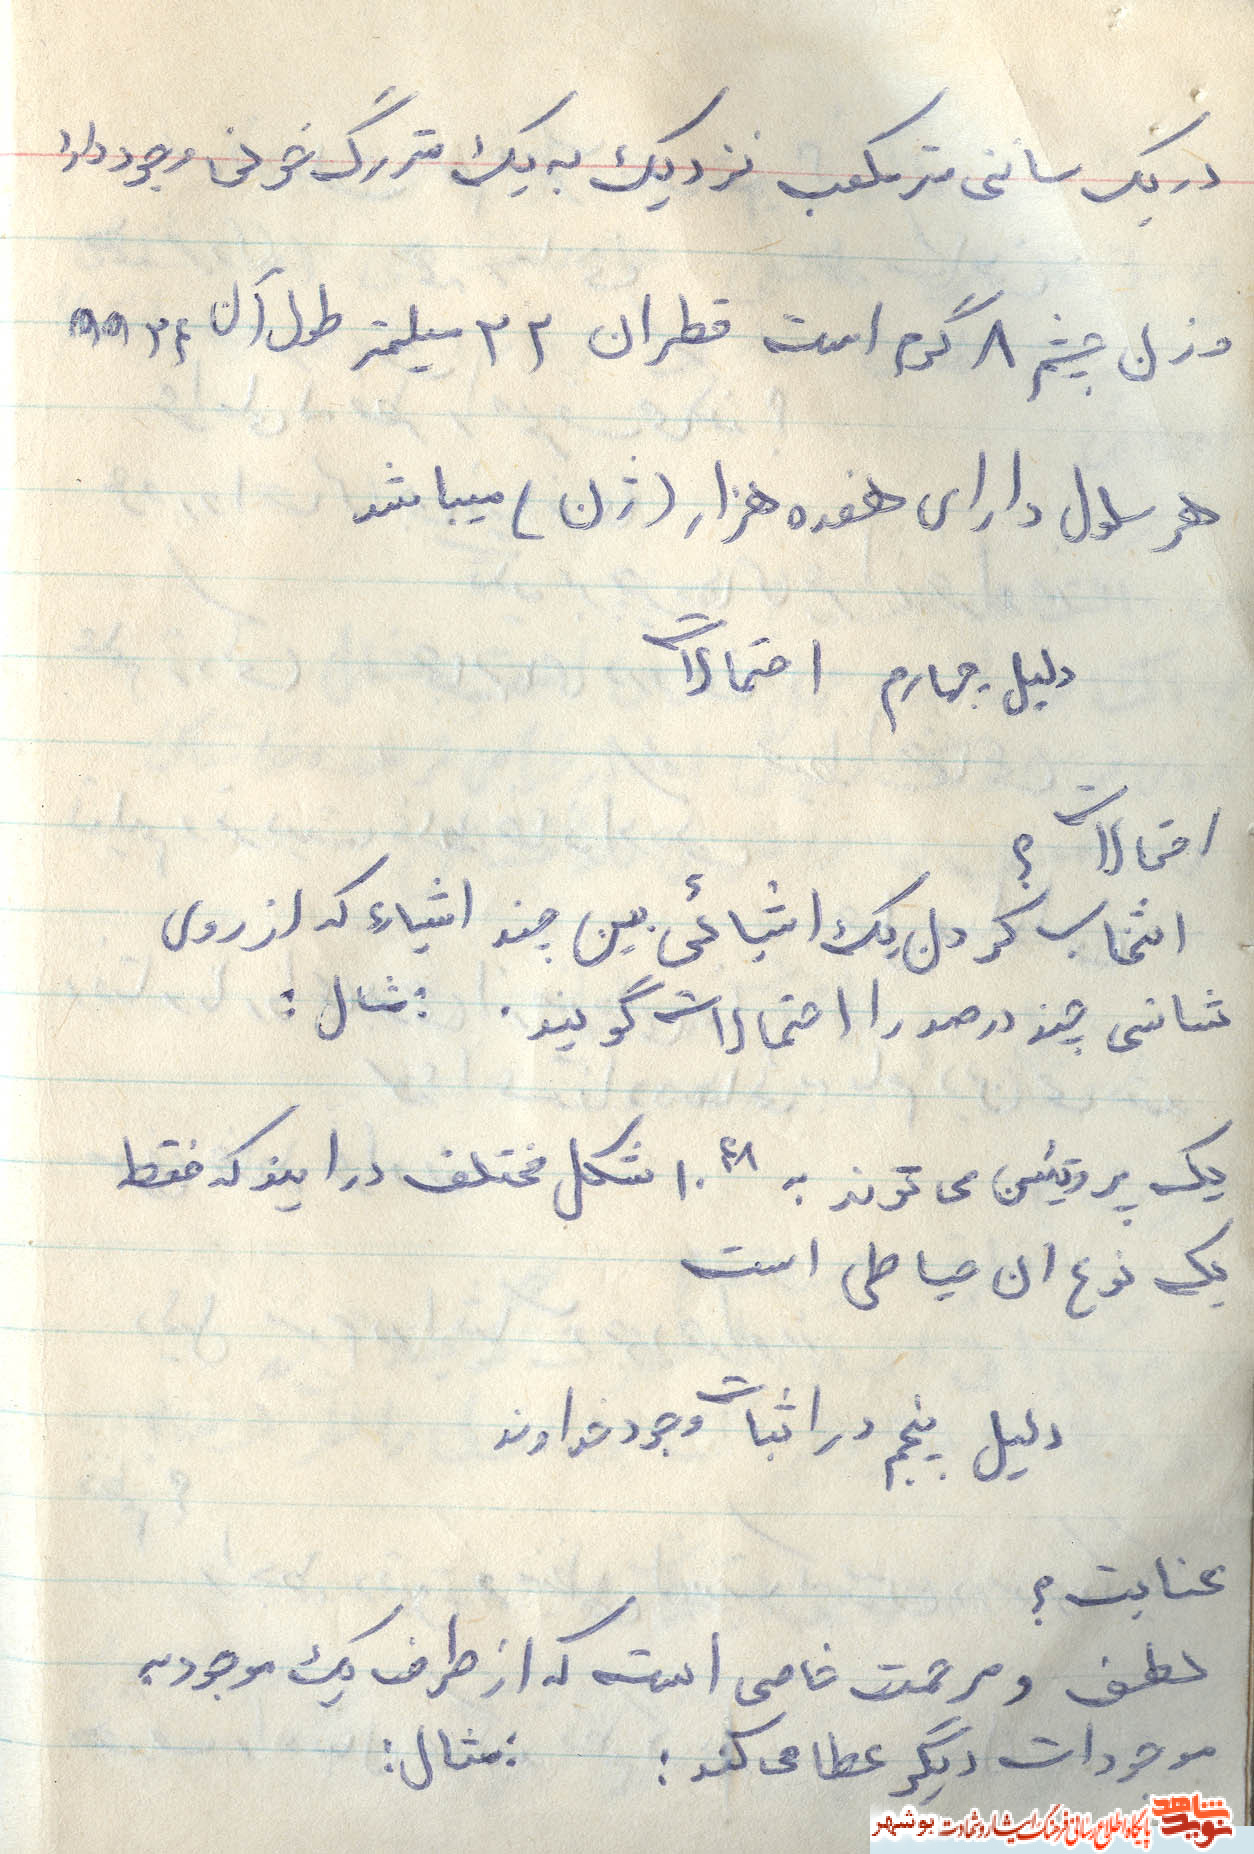 در یک سانتی متر مکعب نزدیک به یک متر رگ خونی وجود دارد
وزن چشم ۸ گرم است قطران ۲۳ میلیمتر طول آن ۲۴
هر سلول دارای هفده هزار (ژن) میباشد
دلیل چهارم احتمالات
احتمالات ؟
انتخاب کردن یک اشیائی بین چند اشیاء که از روی
شانسی چند درصد را احتمالات گویند . : مثال :
یک پروتئین می توند به ۱۰۴۸ شکل مختلف در ایند که فقط
یک نوع ان حیاطی است
دلیل پنجم در اثبات وجود خداوند
عنایت ؟
لطف و مرحمت خاصی است که از طرف یک موجود به
موجودات دیگر عطا می کند : : مثال :
نوید شاهد
پایگاه اطلاع رسانی فرهنگ ایثار و شهادت بوشهر